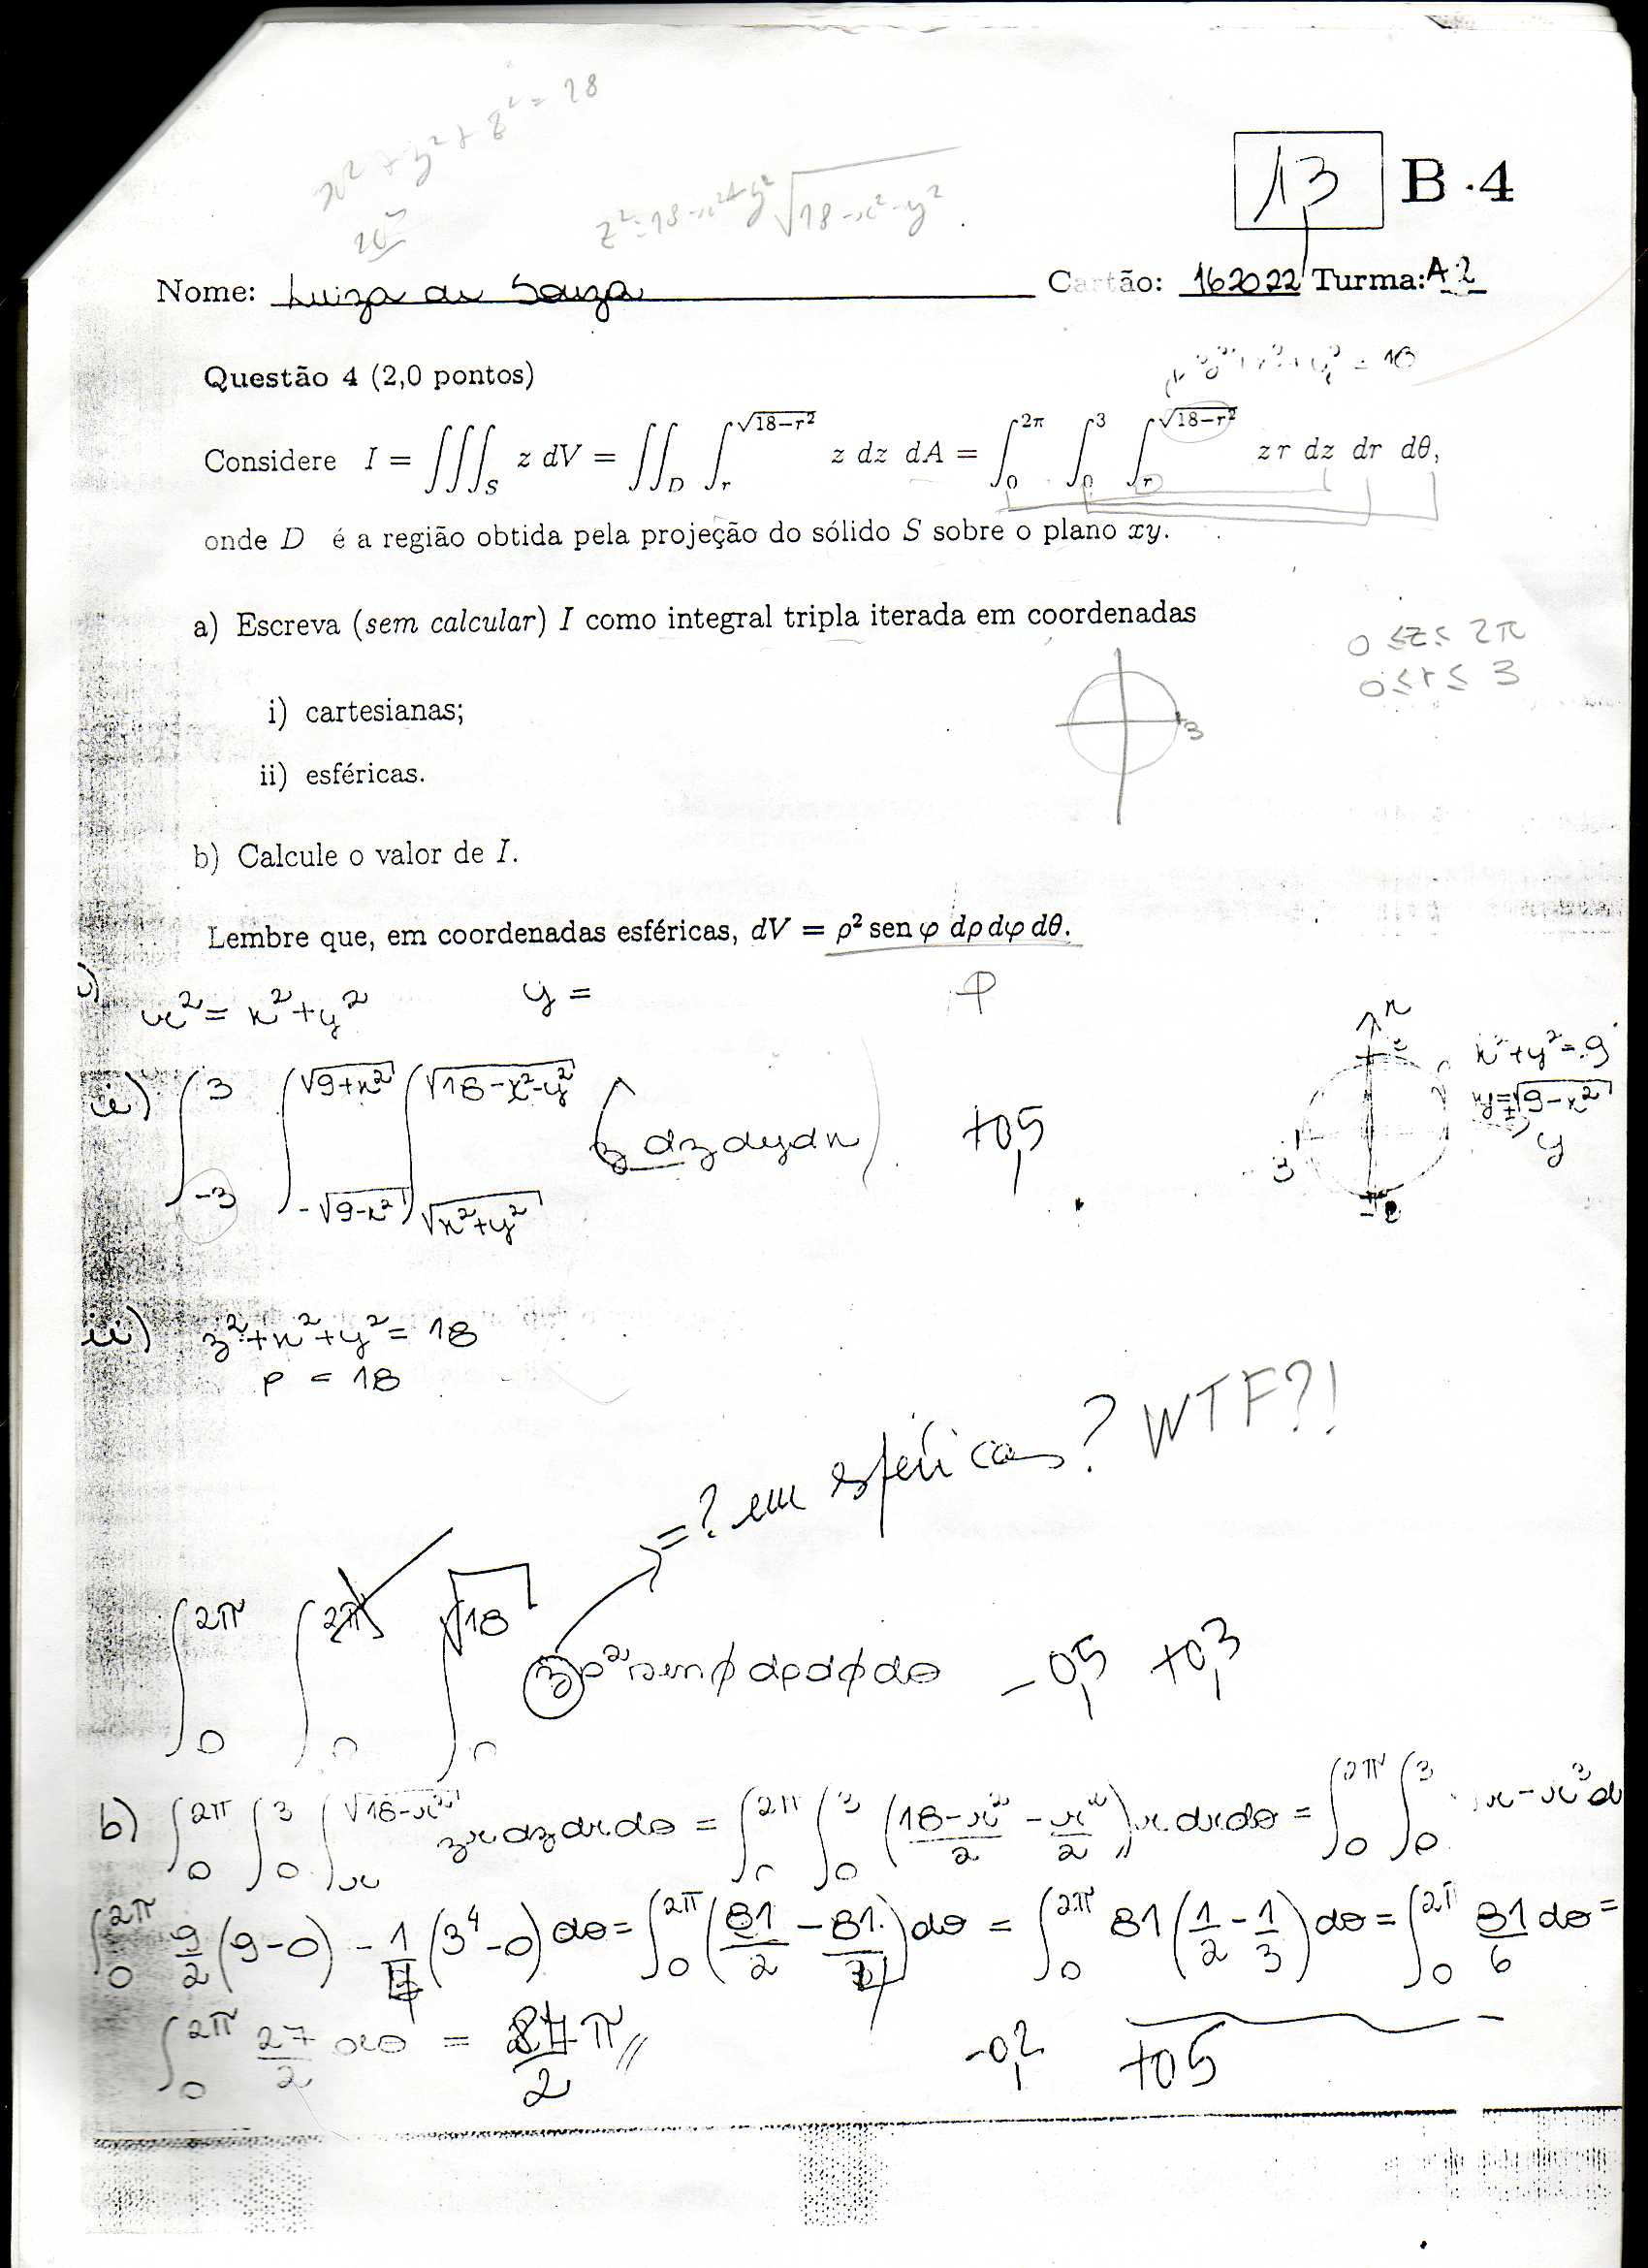 x² + y² + z² = 18
z² = 18 - x² + y² √18 - x² - y²
13 B·4
Nome: Luiza de Souza Cartão: 162022 Turma: A2
Questão 4 (2,0 pontos)
Considere I = ∭_S z dV = ∬_D ∫_r^√(18−r²) z dz dA = ∫_0^2π ∫_0^3 ∫_r^√(18−r²) z r dz dr dθ,
onde D é a região obtida pela projeção do sólido S sobre o plano xy.
a) Escreva (sem calcular) I como integral tripla iterada em coordenadas
0 ≤ z ≤ 2π
0 ≤ r ≤ 3
i) cartesianas;
3
ii) esféricas.
b) Calcule o valor de I.
Lembre que, em coordenadas esféricas, dV = ρ² sen φ dρ dφ dθ.
r² = x² + y² y = φ
x
x² + y² = 9
y = ±√9 - x²
y
3
i) ∫_-3^3 ∫_-√(9-x²)^√(9+x²) ∫_√(x²+y²)^√(18-x²-y²) z dz dy dx +0,5
ii) z² + x² + y² = 18
ρ = 18
=? em esféricas? WTF?!
∫_0^2π ∫_0^2π ∫_0^√18 z ρ² sen φ dρ dφ dθ -0,5 +0,3
b) ∫_0^2π ∫_0^3 ∫_r^√(18-r²) z r dz dr dθ = ∫_0^2π ∫_0^3 (18-r²/2 - r²/2) r dr dθ = ∫_0^2π ∫_0^3 r - r³ d
∫_0^2π 9/2 (9-0) - 1/4 (3⁴-0) dθ = ∫_0^2π (81/2 - 81/4) dθ = ∫_0^2π 81 (1/2 - 1/3) dθ = ∫_0^2π 81/6 dθ =
∫_0^2π 27/2 dθ = 27/2 π // -0,2 +0,5